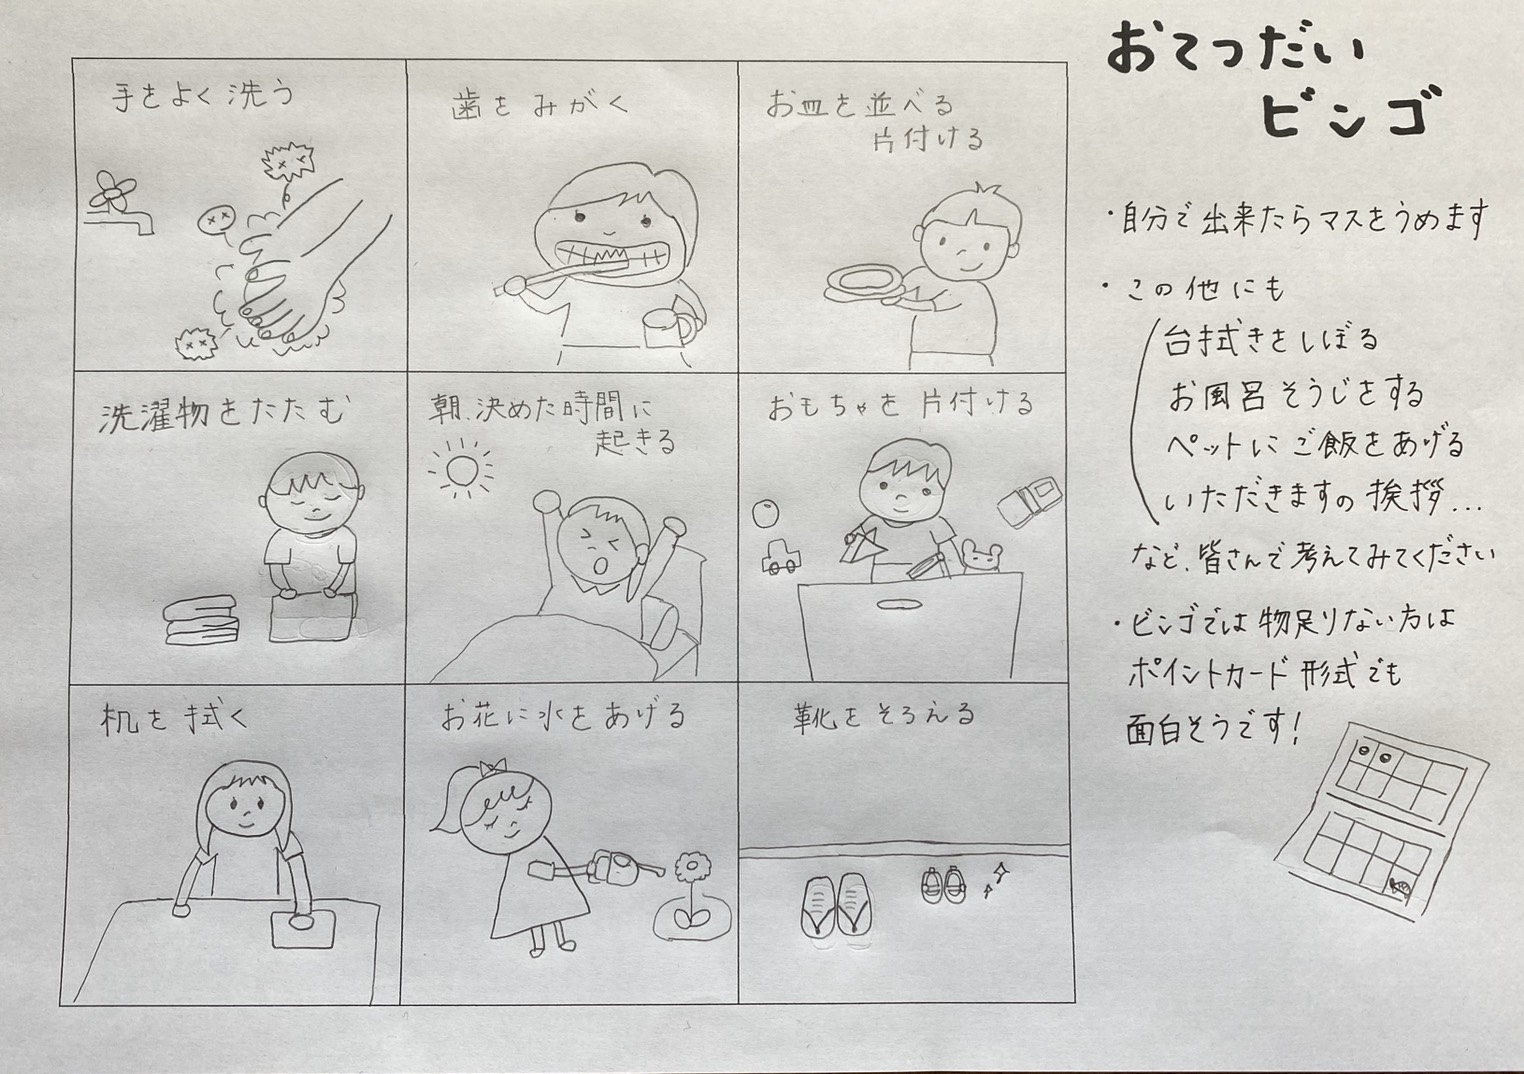 おてつだい
ビンゴ
手をよく洗う
歯をみがく
お皿を並べる
片付ける
洗濯物をたたむ
朝、決めた時間に
起きる
おもちゃを片付ける
机を拭く
お花に水をあげる
靴をそろえる
・自分で出来たらマスをうめます
・この他にも
台拭きをしぼる
お風呂そうじをする
ペットにご飯をあげる
いただきますの挨拶...
など、皆さんで考えてみてください
・ビンゴでは物足りない方は
ポイントカード形式でも
面白そうです!